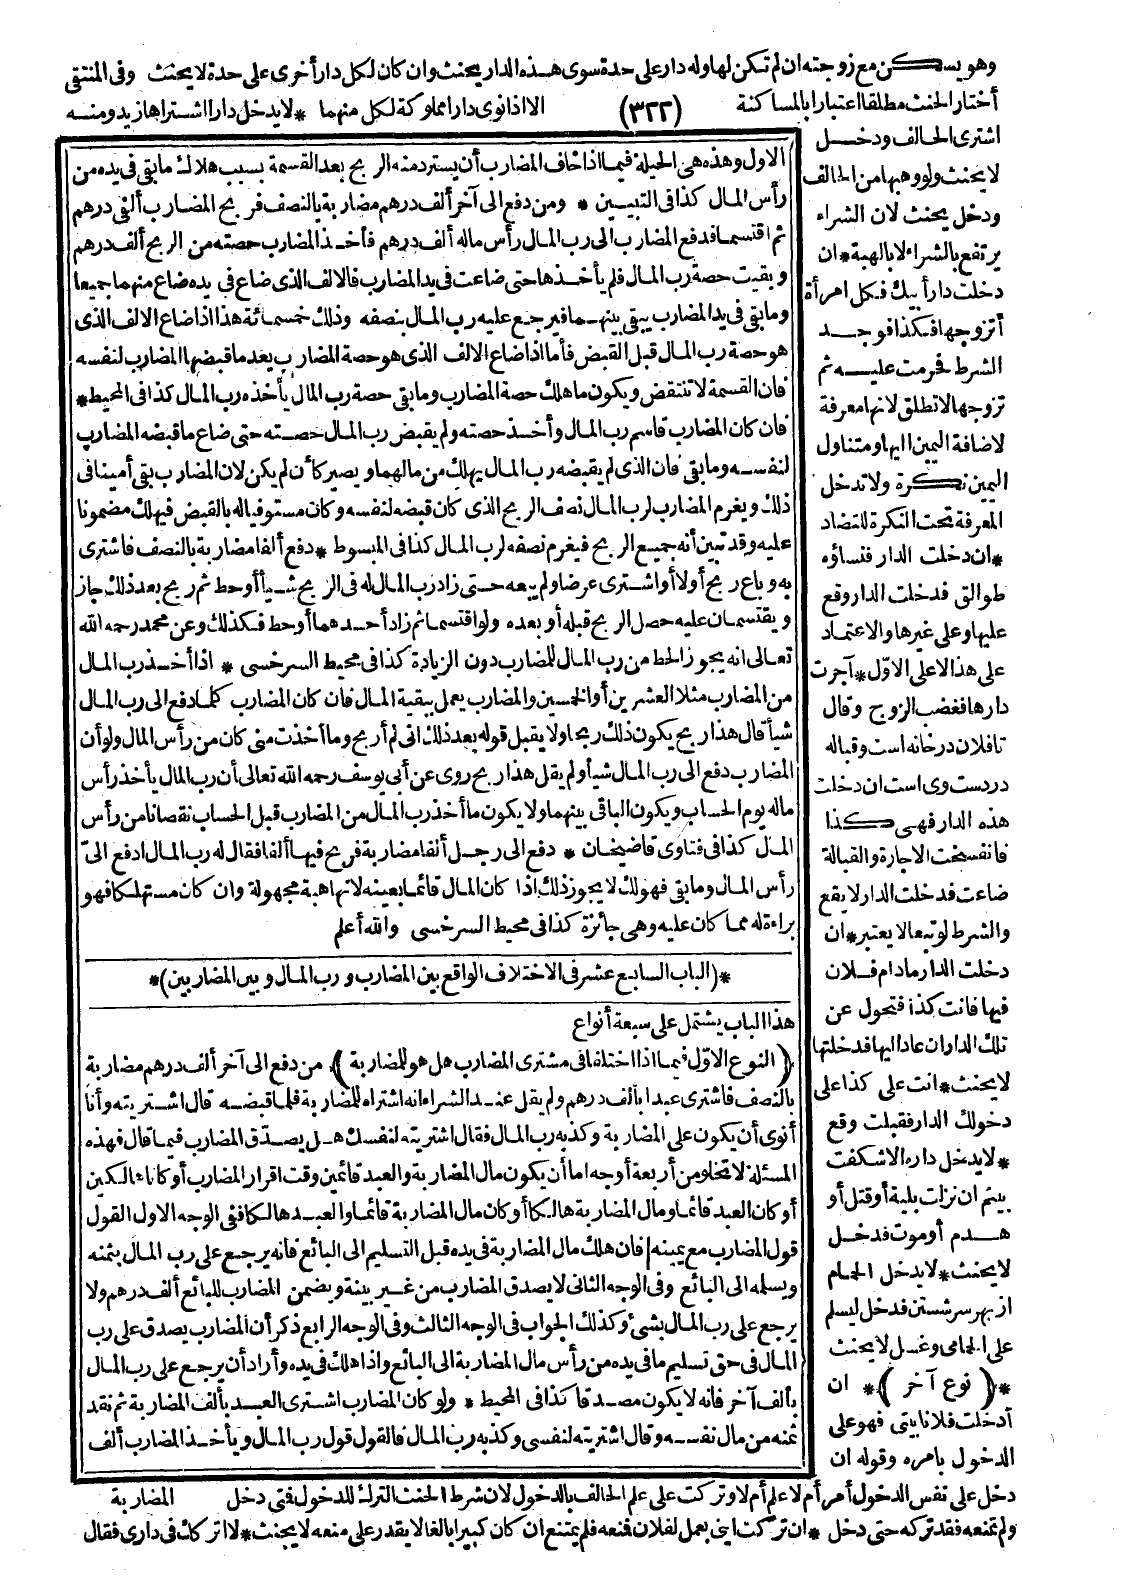 وهو يسكن مع زوجته ان لم تكن لها وله دار على حدة سوى هذه الدار يحنث وان كان لكل دار أخرى على حدة لا يحنث وفى المنتقى
أختار الحنث مطلقا اعتبارا بالمساكنة (٣٢٢) الا اذا نوى دارا مملوكة لكل منهما * لا يدخل دارا اشتراها زيد ومنه
اشترى الحالف ودخل
لا يحنث ولو وهبها من الحالف
ودخل يحنث لان الشراء
يرتفع بالشراء لا بالهبة * ان
دخلت دار أبيك فكل امرأة
أتزوجها فكذا فوجد
الشرط فحرمت عليه ثم
تزوجها لا تطلق لانها معرفة
لاضافة اليمين اليها ومتناول
اليمين نكرة ولا تدخل
المعرفة تحت النكرة للتضاد
* ان دخلت الدار فنساؤه
طوالق فدخلت الدار وقع
عليها وعلى غيرها والاعتماد
على هذا لا على الاوّل * آجرت
دارها فغضب الزوج وقال
تا فلان درخانه است وقباله
دردست وى است ان دخلت
هذه الدار فهى كذا
فانفسخت الاجارة والقبالة
ضاعت فدخلت الدار لا يقع
والشرط لو تبعا لا يعتبر * ان
دخلت الدار مادام فلان
فيها فانت كذا فتحول عن
تلك الدار ان عاد اليها فدخلتها
لا يحنث * انت على كذا على
دخولك الدار فقبلت وقع
* لا يدخل داره الا شكفت
بينم ان نزلت بلية أو قتل أو
هدم أو موت فدخل
لا يحنث * لا يدخل الحمام
از بهر سر شستن فدخل ليسلم
على الحامى وغسل لا يحنث
* (نوع آخر) * ان
أدخلت فلانا بيتى فهو على
الدخول بامره وقوله ان
الاول وهذه هى الحيلة فيما اذا خاف المضارب أن يسترد منه الربح بعد القسمة بسبب هلاك ما بقى فى يده من
رأس المال كذا فى التبيين * ومن دفع الى آخر ألف درهم مضاربة بالنصف فربح المضارب ألفى درهم
ثم اقتسما فدفع المضارب الى رب المال رأس ماله ألف درهم فأخذ المضارب حصته من الربح ألف درهم
وبقيت حصة رب المال فلم يأخذها حتى ضاعت فى يد المضارب فالالف الذى ضاع فى يده ضاع منهما جميعا
وما بقى فى يد المضارب يبقى بينهما فيرجع عليه رب المال بنصفه وذلك خمسمائة هذا اذا ضاع الالف الذى
هو حصة رب المال قبل القبض فأما اذا ضاع الالف الذى هو حصة المضارب بعد ما قبضها المضارب لنفسه
فان القسمة لا تنتقض ويكون ما هلك حصة المضارب وما بقى حصة رب المال يأخذه رب المال كذا فى المحيط *
فان كان المضارب قاسم رب المال وأخذ حصته ولم يقبض رب المال حصته حتى ضاع ما قبضه المضارب
لنفسه وما بقى فان الذى لم يقبضه رب المال يهلك من مالهما ويصير كأن لم يكن لان المضارب بقى أمينا فى
ذلك ويغرم المضارب لرب المال نصف الربح الذى كان قبضه لنفسه وكان مستوفيا له بالقبض فيهلك مضمونا
عليه وقد تبين أنه جميع الربح فيغرم نصفه لرب المال كذا فى المبسوط * دفع ألفا مضاربة بالنصف فاشترى
به وباع ربح أولا أو اشترى عرضا ولم يبعه حتى زاد رب المال له فى الربح شيأ أو حط ثم ربح بعد ذلك جاز
ويقتسمان عليه حصل الربح قبله أو بعده ولو اقتسما ثم زاد أحدهما أو حط فكذلك وعن محمد رحمه الله
تعالى انه يجوز الحط من رب المال للمضارب دون الزيادة كذا فى محيط السرخسى * اذا أخذ رب المال
من المضارب مثلا العشرين أو الخمسين والمضارب يعمل ببقية المال فان كان المضارب كلما دفع الى رب المال
شيأ قال هذا ربح يكون ذلك ربحا ولا يقبل قوله بعد ذلك انى لم أربح وما أخذت منى كان من رأس المال ولو أن
المضارب دفع الى رب المال شيأ ولم يقل هذا ربح روى عن أبى يوسف رحمه الله تعالى أن رب المال يأخذ رأس
ماله يوم الحساب ويكون الباقى بينهما ولا يكون ما أخذ رب المال من المضارب قبل الحساب نقصانا من رأس
المال كذا فى فتاوى قاضيخان * دفع الى رجل ألفا مضاربة فربح فيها ألفا فقال له رب المال ادفع الىّ
رأس المال وما بقى فهو لك لا يجوز ذلك اذا كان المال قائما بعينه لانها هبة مجهولة وان كان مستهلكا فهو
براءة له مما كان عليه وهى جائزة كذا فى محيط السرخسى والله أعلم
* (الباب السابع عشر فى الاختلاف الواقع بين المضارب ورب المال وبين المضاربين) *
هذا الباب يشتمل على سبعة أنواع
(النوع الاوّل فيما اذا اختلفا فى مشترى المضارب هل هو للمضاربة) من دفع الى آخر ألف درهم مضاربة
بالنصف فاشترى عبدا بألف درهم ولم يقل عند الشراء انه اشتراه للمضاربة فلما قبضه قال اشتريته وأنا
أنوى أن يكون على المضاربة وكذبه رب المال فقال اشتريته لنفسك هل يصدق المضارب فيما قال فهذه
المسئلة لا تخلو من أربعة أوجه اما أن يكون مال المضاربة والعبد قائمين وقت اقرار المضارب أو كانا هالكين
أو كان العبد قائما ومال المضاربة هالكا أو كان مال المضاربة قائما والعبد هالكا ففى الوجه الاول القول
قول المضارب مع يمينه فان هلك مال المضاربة فى يده قبل التسليم الى البائع فانه يرجع على رب المال بثمنه
ويسلمه الى البائع وفى الوجه الثانى لا يصدق المضارب من غير بينة ويضمن المضارب للبائع ألف درهم ولا
يرجع على رب المال بشئ وكذلك الجواب فى الوجه الثالث وفى الوجه الرابع ذكر أن المضارب يصدق على رب
المال فى حق تسليم ما فى يده من رأس مال المضاربة الى البائع واذا هلك فى يده وأراد أن يرجع على رب المال
بألف آخر فانه لا يكون مصدقا كذا فى المحيط * ولو كان المضارب اشترى العبد بألف المضاربة ثم نقد
ثمنه من مال نفسه وقال اشتريته لنفسى وكذبه رب المال فالقول قول رب المال ويأخذ المضارب ألف
المضاربة
دخل على نفس الدخول أمر أم لا علم أم لا وتركت على علم الحالف بالدخول لان شرط الحنث الترك للدخول فتى دخل
ولم تمنعه فقد تركه حتى دخل * ان تركت ابنى يعمل لفلان فمنعه فلم يمتنع ان كان كبيرا بالغا لا يقدر على منعه لا يحنث * لا اتركك فى دارى فقال